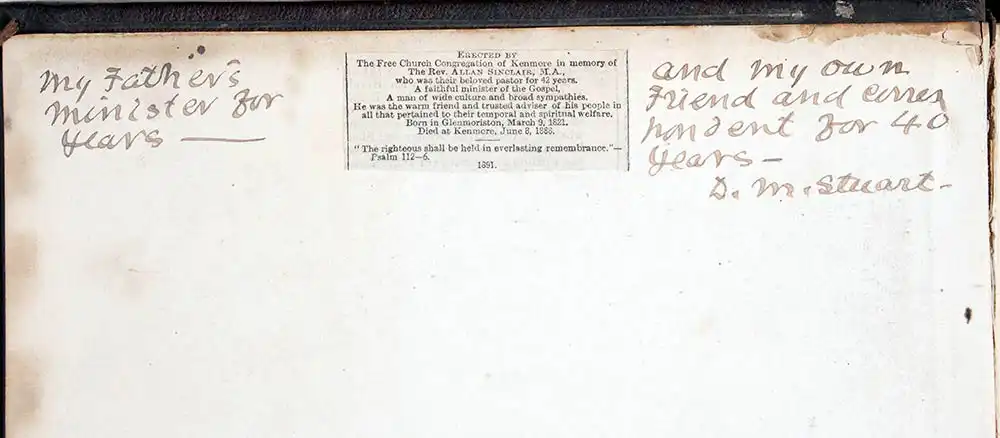 My Father's
minister for
years —
ERECTED BY
The Free Church Congregation of Kenmore in memory of
The Rev. ALLAN SINCLAIR, M.A.,
who was their beloved pastor for 42 years.
A faithful minister of the Gospel,
A man of wide culture and broad sympathies.
He was the warm friend and trusted adviser of his people in
all that pertained to their temporal and spiritual welfare.
Born in Glenmoriston, March 9, 1821.
Died at Kenmore, June 8, 1888.
"The righteous shall be held in everlasting remembrance."—
Psalm 112-6.
1891.
and my own
Friend and corres
pondent for 40
years —
D. M. Stuart —